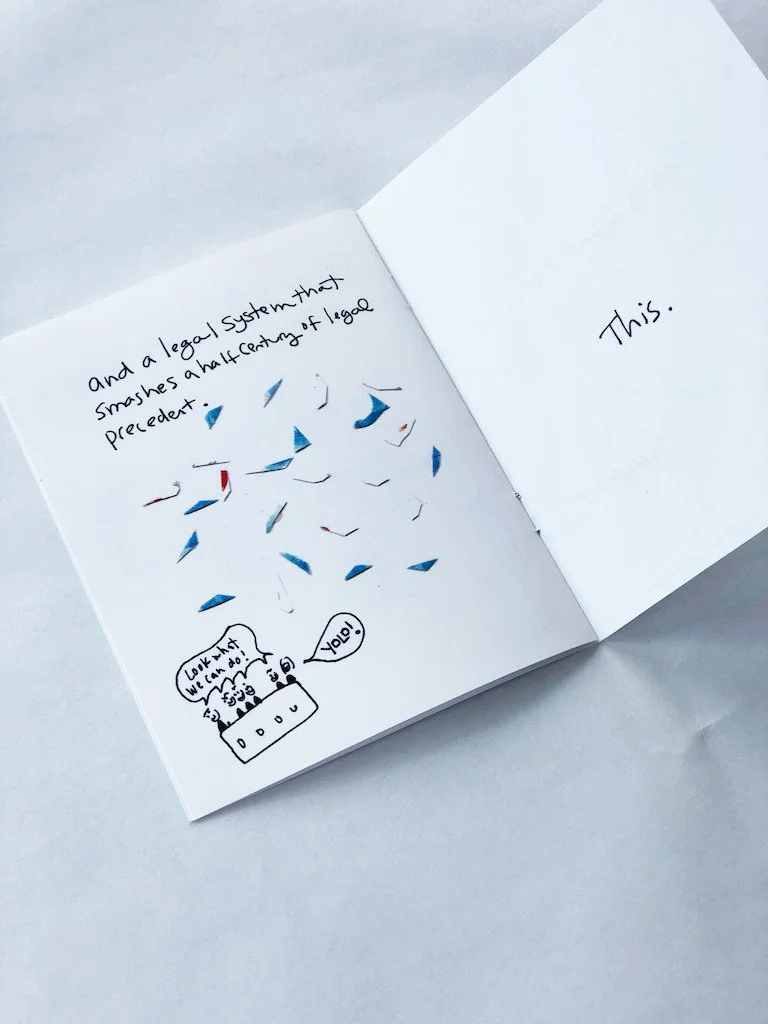 and a legal system that
smashes a half century of legal
precedent.
Look what
we can do!
YOLO!
This.